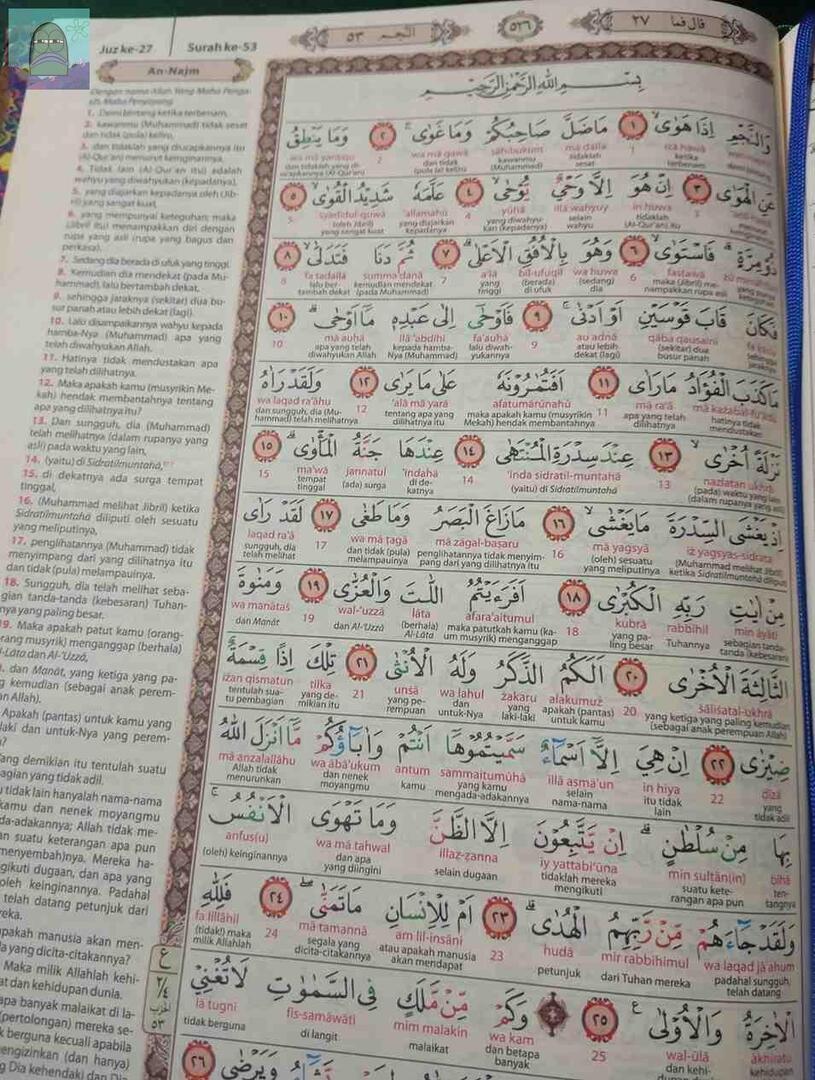 Juz ke-27
Surah ke-53
النجم ٥٣
٥٢٦
قال فما ٢٧
An-Najm
Dengan nama Allah Yang Maha
Maha Penyayang
1. Demi bintang ketika terbenam,
2. kawanmu (Muhammad) tidak sesat
dan tidak (pula) keliru,
3. dan tidaklah yang diucapkannya itu
(Al-Qur'an) menurut keinginannya.
4. Tidak lain (Al-Qur'an itu) adalah
wahyu yang diwahyukan (kepadanya),
5. yang diajarkan kepadanya oleh (Jib-
ril) yang sangat kuat,
6. yang mempunyai keteguhan; maka
(Jibril itu) menampakkan diri dengan
rupa yang asli (rupa yang bagus dan
perkasa).
7. Sedang dia berada di ufuk yang tinggi.
8. Kemudian dia mendekat (pada Mu-
hammad), lalu bertambah dekat,
9. sehingga jaraknya (sekitar) dua bu-
sur panah atau lebih dekat (lagi).
10. Lalu disampaikannya wahyu kepada
hamba-Nya (Muhammad) apa yang
telah diwahyukan Allah.
11. Hatinya tidak mendustakan apa
yang telah dilihatnya.
12. Maka apakah kamu (musyrikin Me-
kah) hendak membantahnya tentang
apa yang dilihatnya itu?
13. Dan sungguh, dia (Muhammad)
telah melihatnya (dalam rupanya yang
asli) pada waktu yang lain,
14. (yaitu) di Sidratilmuntahā,
15. di dekatnya ada surga tempat
tinggal,
16. (Muhammad melihat Jibril) ketika
Sidratilmuntahā diliputi oleh sesuatu
yang meliputinya,
17. penglihatannya (Muhammad) tidak
menyimpang dari yang dilihatnya itu
dan tidak (pula) melampauinya.
18. Sungguh, dia telah melihat seba-
gian tanda-tanda (kebesaran) Tuhan-
nya yang paling besar.
19. Maka apakah patut kamu (orang-
orang musyrik) menganggap (berhala)
Al-Lāta dan Al-'Uzzā,
dan Manāt, yang ketiga yang pa-
kemudian (sebagai anak perem-
an Allah).
Apakah (pantas) untuk kamu yang
laki dan untuk-Nya yang perem-
ang demikian itu tentulah suatu
bagian yang tidak adil.
tidak lain hanyalah nama-nama
kamu dan nenek moyangmu
da-adakannya; Allah tidak me-
an suatu keterangan apa pun
menyembah)nya. Mereka ha-
gikuti dugaan, dan apa yang
oleh keinginannya. Padahal
telah datang petunjuk dari
reka.
pakah manusia akan men-
a yang dicita-citakannya?
Maka milik Allahlah kehi-
at dan kehidupan dunia.
apa banyak malaikat di la-
(pertolongan) mereka se-
k berguna kecuali apabila
engizinkan (dan hanya)
g Dia kehendaki dan Dia
بِسْمِ اللّٰهِ الرَّحْمٰنِ الرَّحِيْمِ
وَالنَّجْمِ اِذَا هَوٰىۙ ١ مَا ضَلَّ صَاحِبُكُمْ وَمَا غَوٰىۚ ٢ وَمَا يَنْطِقُ
iżā hawā 1 mā ḍalla ṣāḥibukum wa mā gawā 2 wa mā yanṭiqu
ketika terbenam tidaklah sesat kawanmu (Muhammad) dan tidak (pula) keliru dan tidaklah yang diucapkannya (Al-Qur'an)
عَنِ الْهَوٰى ٣ اِنْ هُوَ اِلَّا وَحْيٌ يُّوْحٰىۙ ٤ عَلَّمَهٗ شَدِيْدُ الْقُوٰىۙ ٥
3 in huwa illā wahyuy yūḥā 4 'allamahū syadīdul-quwā 5
tidaklah (Al-Qur'an) itu selain wahyu yang diwahyukan (kepadanya) yang diajarkan kepadanya (oleh Jibril) yang sangat kuat
ذُوْ مِرَّةٍۗ فَاسْتَوٰىۙ ٦ وَهُوَ بِالْاُفُقِ الْاَعْلٰىۗ ٧ ثُمَّ دَنَا فَتَدَلّٰىۙ ٨
fastawā 6 wa huwa bil-ufuqil a'lā 7 summa danā fa tadallā 8
maka (Jibril) menampakkan rupa asli (sedang) dia (berada) di ufuk yang tinggi kemudian mendekat (pada Muhammad) lalu bertambah dekat
فَكَانَ قَابَ قَوْسَيْنِ اَوْ اَدْنٰىۚ ٩ فَاَوْحٰٓى اِلٰى عَبْدِهٖ مَآ اَوْحٰىۗ ١٠
qāba qausaini au adnā 9 fa'auḥā ilā 'abdihī mā auḥā 10
(sekitar) dua busur panah atau lebih dekat (lagi) lalu diwahyukannya kepada hamba-Nya (Muhammad) apa yang telah diwahyukan Allah
مَا كَذَبَ الْفُؤَادُ مَا رَاٰى ١١ اَفَتُمٰرُوْنَهٗ عَلٰى مَا يَرٰى ١٢ وَلَقَدْ رَاٰهُ
mā każabal-fu'ādu mā ra'ā 11 afatumārūnahū 'alā mā yarā 12 wa laqad ra'āhu
hatinya tidak mendustakan apa yang telah dilihatnya maka apakah kamu (musyrikin Mekah) hendak membantahnya tentang apa yang dilihatnya itu dan sungguh, dia (Muhammad) telah melihatnya
نَزْلَةً اُخْرٰىۙ ١٣ عِنْدَ سِدْرَةِ الْمُنْتَهٰى ١٤ عِنْدَهَا جَنَّةُ الْمَأْوٰىۗ ١٥
nazlatan ukhrā 13 'inda sidratil-muntahā 14 'indahā jannatul ma'wā 15
(pada) waktu yang lain (dalam rupanya yang asli) (yaitu) di Sidratilmuntahā di dekatnya (ada) surga tempat tinggal
اِذْ يَغْشَى السِّدْرَةَ مَا يَغْشٰىۙ ١٦ مَا زَاغَ الْبَصَرُ وَمَا طَغٰى ١٧ لَقَدْ رَاٰى
iż yagsyas-sidrata mā yagsyā 16 mā zāgal-baṣaru wa mā ṭagā 17 laqad ra'ā
(Muhammad melihat Jibril) ketika Sidratilmuntahā diliputi (oleh) sesuatu yang meliputinya penglihatannya tidak menyimpang dari yang dilihatnya itu dan tidak (pula) melampauinya sungguh, dia telah melihat
مِنْ اٰيٰتِ رَبِّهِ الْكُبْرٰى ١٨ اَفَرَءَيْتُمُ اللّٰتَ وَالْعُزّٰى ١٩ وَمَنٰوةَ
min āyāti rabbihil kubrā 18 afara'aitumul lāta wal-'uzzā 19 wa manātaṡ
sebagian tanda-tanda (kebesaran) Tuhannya yang paling besar maka patutkah kamu (kaum musyrik) menganggap (berhala) Al-Lāta dan Al-'Uzzā dan Manāt
الثَّالِثَةَ الْاُخْرٰى ٢٠ اَلَكُمُ الذَّكَرُ وَلَهُ الْاُنْثٰى ٢١ تِلْكَ اِذًا قِسْمَةٌ
ṡāliṡatal-ukhrā 20 alakumuż żakaru wa lahul unṡā 21 tilka iżan qismatun
yang ketiga yang paling kemudian (sebagai anak perempuan Allah) apakah (pantas) untuk kamu yang laki-laki dan untuk-Nya yang perempuan yang demikian itu tentulah suatu pembagian
ضِيْزٰى ٢٢ اِنْ هِيَ اِلَّآ اَسْمَاۤءٌ سَمَّيْتُمُوْهَآ اَنْتُمْ وَاٰبَاۤؤُكُمْ مَّآ اَنْزَلَ اللّٰهُ
ḍīzā 22 in hiya illā asmā'un sammaitumūhā antum wa ābā'ukum mā anzalallāhu
yang tidak adil itu tidak lain selain nama-nama yang kamu mengada-adakannya kamu dan nenek moyangmu Allah tidak menurunkan
بِهَا مِنْ سُلْطٰنٍۗ اِنْ يَّتَّبِعُوْنَ اِلَّا الظَّنَّ وَمَا تَهْوَى الْاَنْفُسُۚ
bihā min sulṭān(in) iy yattabi'ūna illaẓ-ẓanna wa mā tahwal anfus(u)
tentangnya suatu keterangan apa pun tidaklah mereka mengikuti selain dugaan dan apa yang diingini (oleh) keinginannya
وَلَقَدْ جَاۤءَهُمْ مِّنْ رَّبِّهِمُ الْهُدٰىۗ ٢٣ اَمْ لِلْاِنْسَانِ مَا تَمَنّٰىۖ ٢٤ فَلِلّٰهِ
wa laqad jā'ahum mir rabbihimul hudā 23 am lil-insāni mā tamannā 24 fa lillāhil
padahal sungguh, telah datang dari Tuhan mereka petunjuk atau apakah manusia akan mendapat segala yang dicita-citakannya (tidak!) maka milik Allahlah
الْاٰخِرَةُ وَالْاُوْلٰى ٢٥ وَكَمْ مِّنْ مَّلَكٍ فِى السَّمٰوٰتِ لَا تُغْنِيْ
ākhiratu wal-ūlā 25 wa kam mim malakin fis-samāwāti lā tugnī
kehidupan dan kehi- dan betapa banyak malaikat di langit tidak berguna
ع
٢٦